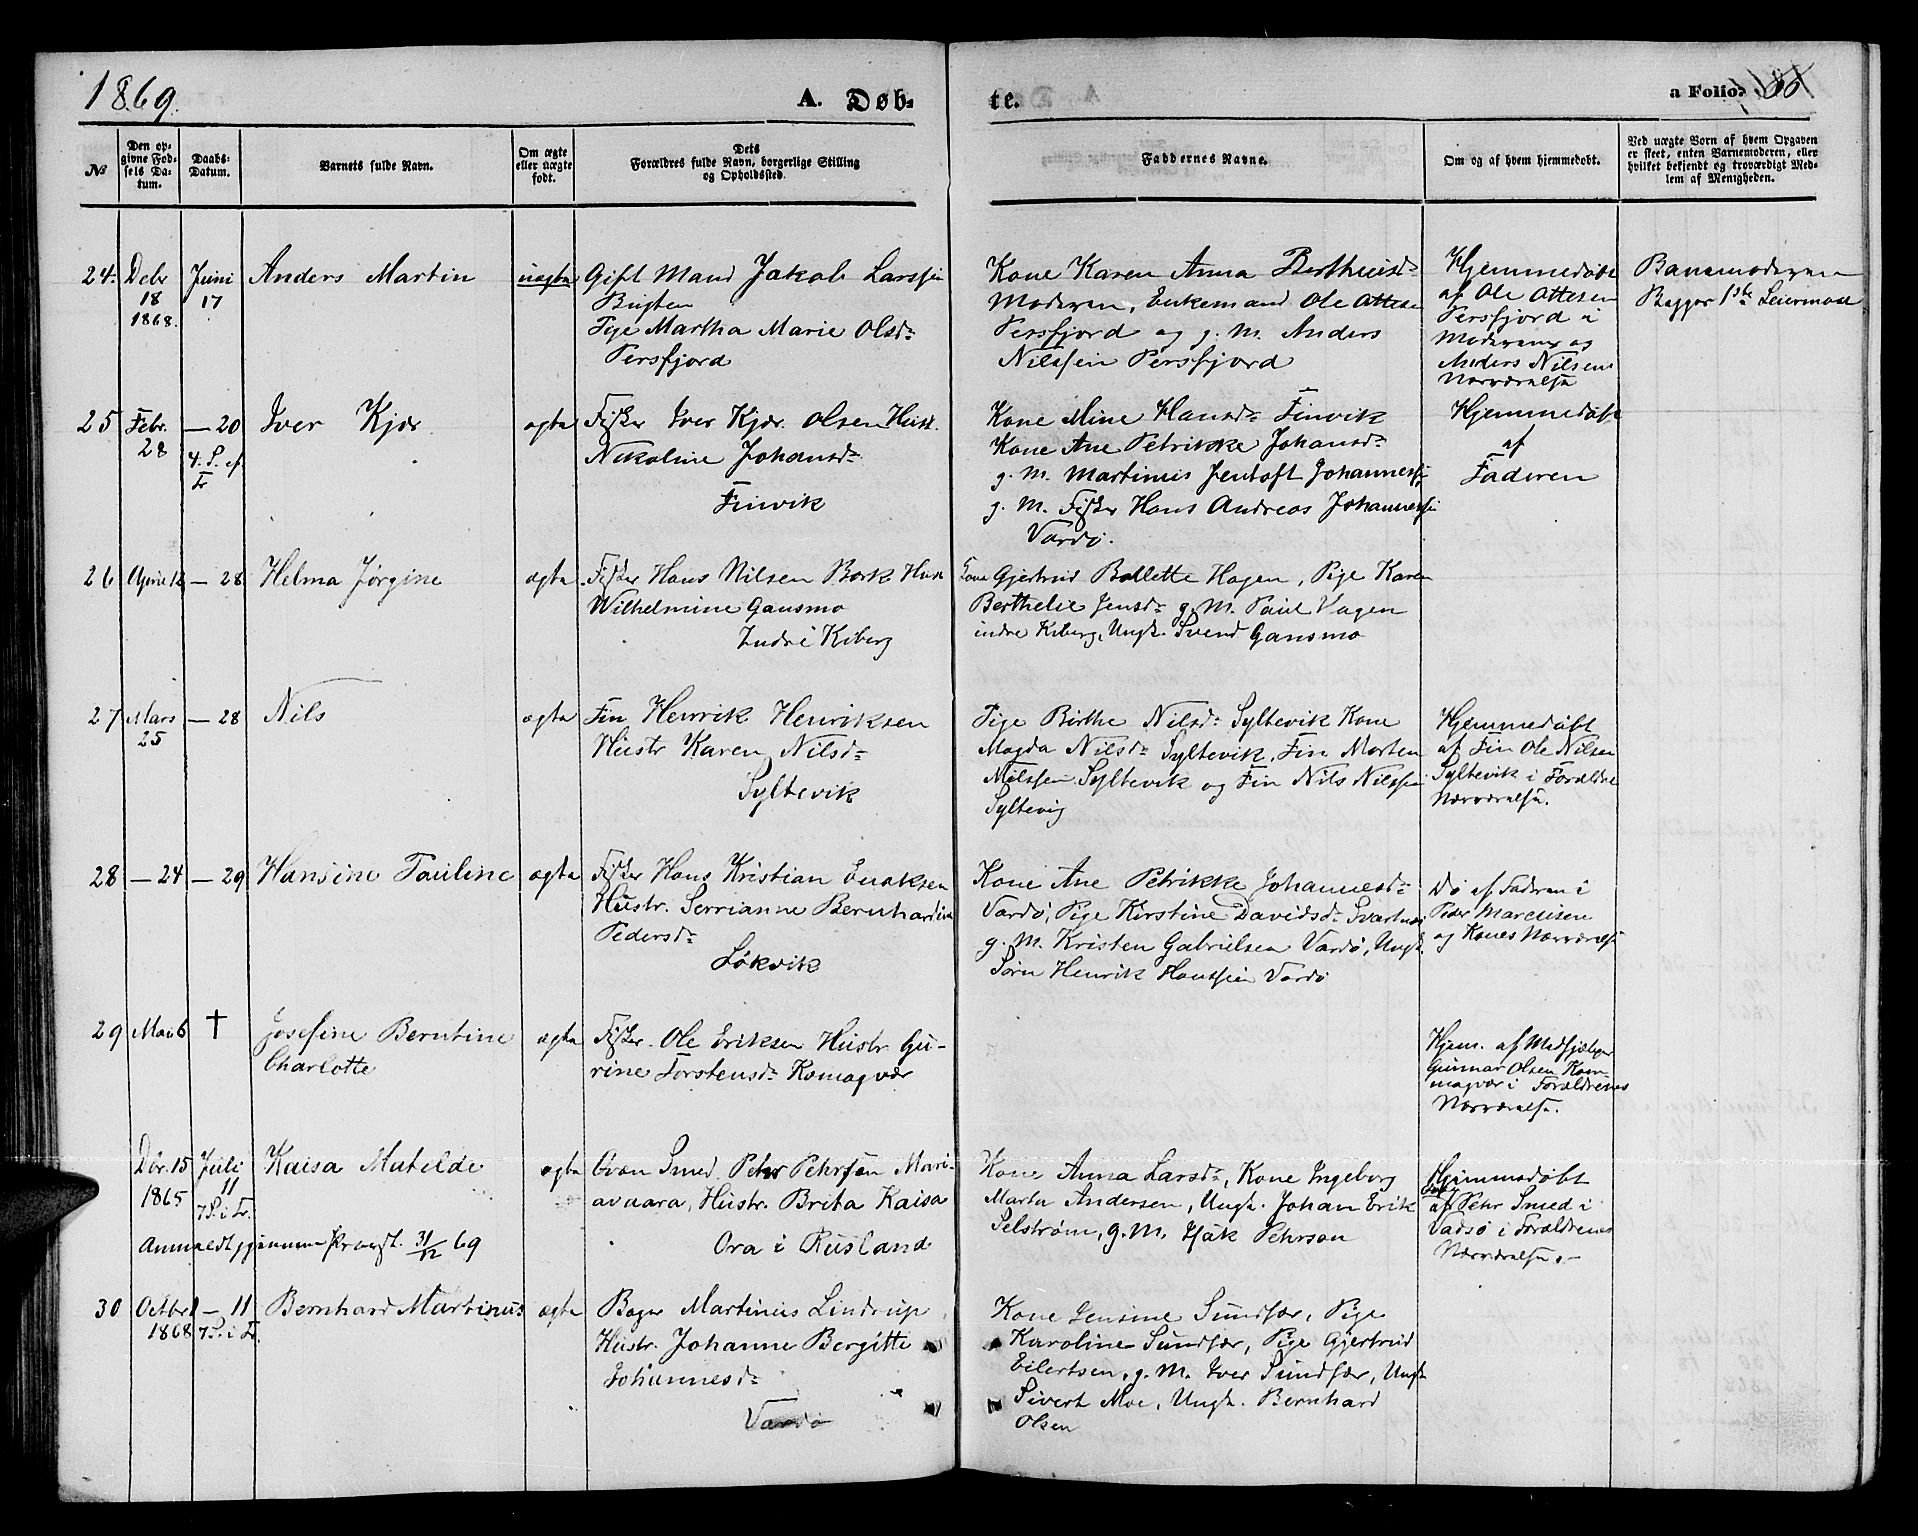 1869.
A. Døb-
te.
a Folio. 80
No
Den op-
givne Fød-
sels Da-
tum.
Daabs-
Datum.
Barnets fulde Navn.
Om ægte
eller uægte
født.
Dets
Forældres fulde Navn, borgerlige Stilling
og Opholdssted.
Faddernes Navne.
Om og af hvem hjemmedøbt.
Ved uægte Børn af hvem Opgaven
er skeet, enten Barnemoderen, eller
hvilket bekjendt og troværdigt Med-
lem af Menigheden.
24.
Debr
18
1868.
Juni
17
Anders Martin
uægte
Gift Mand Jakob Larssen
Bugten
Pige Martha Marie Olsd:
Persfjord
Kone Karen Anna
Moderen, Enkemand Ole Ottesen
Persfjord og g. M. Anders
Nilssen Persfjord
Hjemmedøbt
af Ole Ottesen
Persfjord i
Moderens og
Anders Nilsens
Nærværelse
Barnemoderen
Begges 1ste Leiermaal
25
Febr.
28
— 20
4. S. ef
Tr
Iver Kjær
ægte
Fisker Iver Kjær Olsen Hust.
Nikoline Johansd:
Finvik
Kone Mine Hansd: Finvik
Kone Ane Petrikke Johansd:
g. M. Martinus Jentoft Johannessen
g. M. Fisker Hans Andreas Johannessen
Vardø.
Hjemmedøbt
af
Faderen
26
April 12
— 28
Helma Jørgine
ægte
Fisker Hans Nilsen Bork Hust
Wilhelmine Gansmo
Indre Kiberg
Kone Gjertrud Bollette Hagen, Pige Karen
Berthelie Jensd: g. M. Paul Hagen
indre Kiberg, Ungk. Svend Gansmo
27
Mars
25
— 28
Nils
ægte
Fin Henrik Henriksen
Hustr Karen Nilsd:
Syltevik
Pige Birthe Nilsd: Syltevik Kone
Magda Nilsd: Syltevik, Fin Morten
Nilssen Syltevik og Fin Nils Nilssen
Syltevig
Hjemmedøbt
af Fin Ole Nilsen
Syltevik i Forældre
Nærværelse.
28
— 24
— 29
Hansine Pauline
ægte
Fisker Hans Kristian
Hustr. Serrianne Bernhardine
Pedersd:
Løkvik
Kone Ane Petrikke Johannesd:
Vardø, Pige Kirstine Davidsd: Svartnæs
g. M. Kristen Gabrielsen Vardø, Ungk.
Sørn Henrik Hanssen Vardø
Do af Fadren i
Peder Marcusens
og Kones Nærværelse
29
Mai 6
†
Josefine Berntine
Charlotte
ægte
Fisker Ole Eriksen Hustr Gu-
rine Torstensd: Komagvær
Hjem. af Medhjælper
Gunnar Olsen Kom-
magvær i Forældrenes
Nærværelse.
Dbr. 15
1865
Juli
11
7 S. i Tr.
Kaisa Matilde
ægte
Qvæn Smed Pehr Pehrsen Mari-
avaara, Hustr. Brita Kaisa
Ora i Rusland
Kone Anna Larsd:, Kone Ingeborg
Marta Andersen, Ungk. Johan Erik
Selstrøm, g. M. Isak Pehrson
Hjemmedøbt
af Pehr Smed i
Vadsø i Forældrenes
Nærværelse. —
Anmeldt gjennem Provst. 31/12 69
30
Octbr 1
1868
— 11
7 S. i Tr.
Bernhard Martinus
ægte
Bager Martinus Lindrup
Hustr. Johanne Bergitte
Johannesd:
Vardø
Kone Jensine Sundfær, Pige
Karoline Sundfær, Pige Gjertrud
Eilertsen, g. M. Iver Sundfær, Ungk
Sivert Moe, Ungk. Bernhard
Olsen